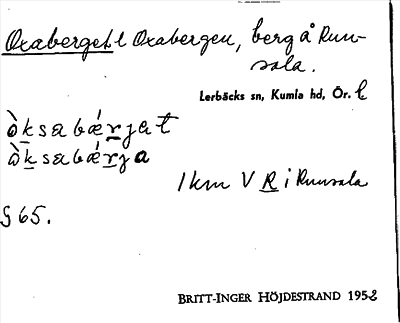 Oxaberget l Oxabergen, berg å Runn-
sala.
Lerbäcks sn, Kumla hd, Ör. l
ò̀ksabǽrjat
ò̀ksabǽrja
1 km V R i Runnsala
§ 65.
BRITT-INGER HÖJDESTRAND 1952